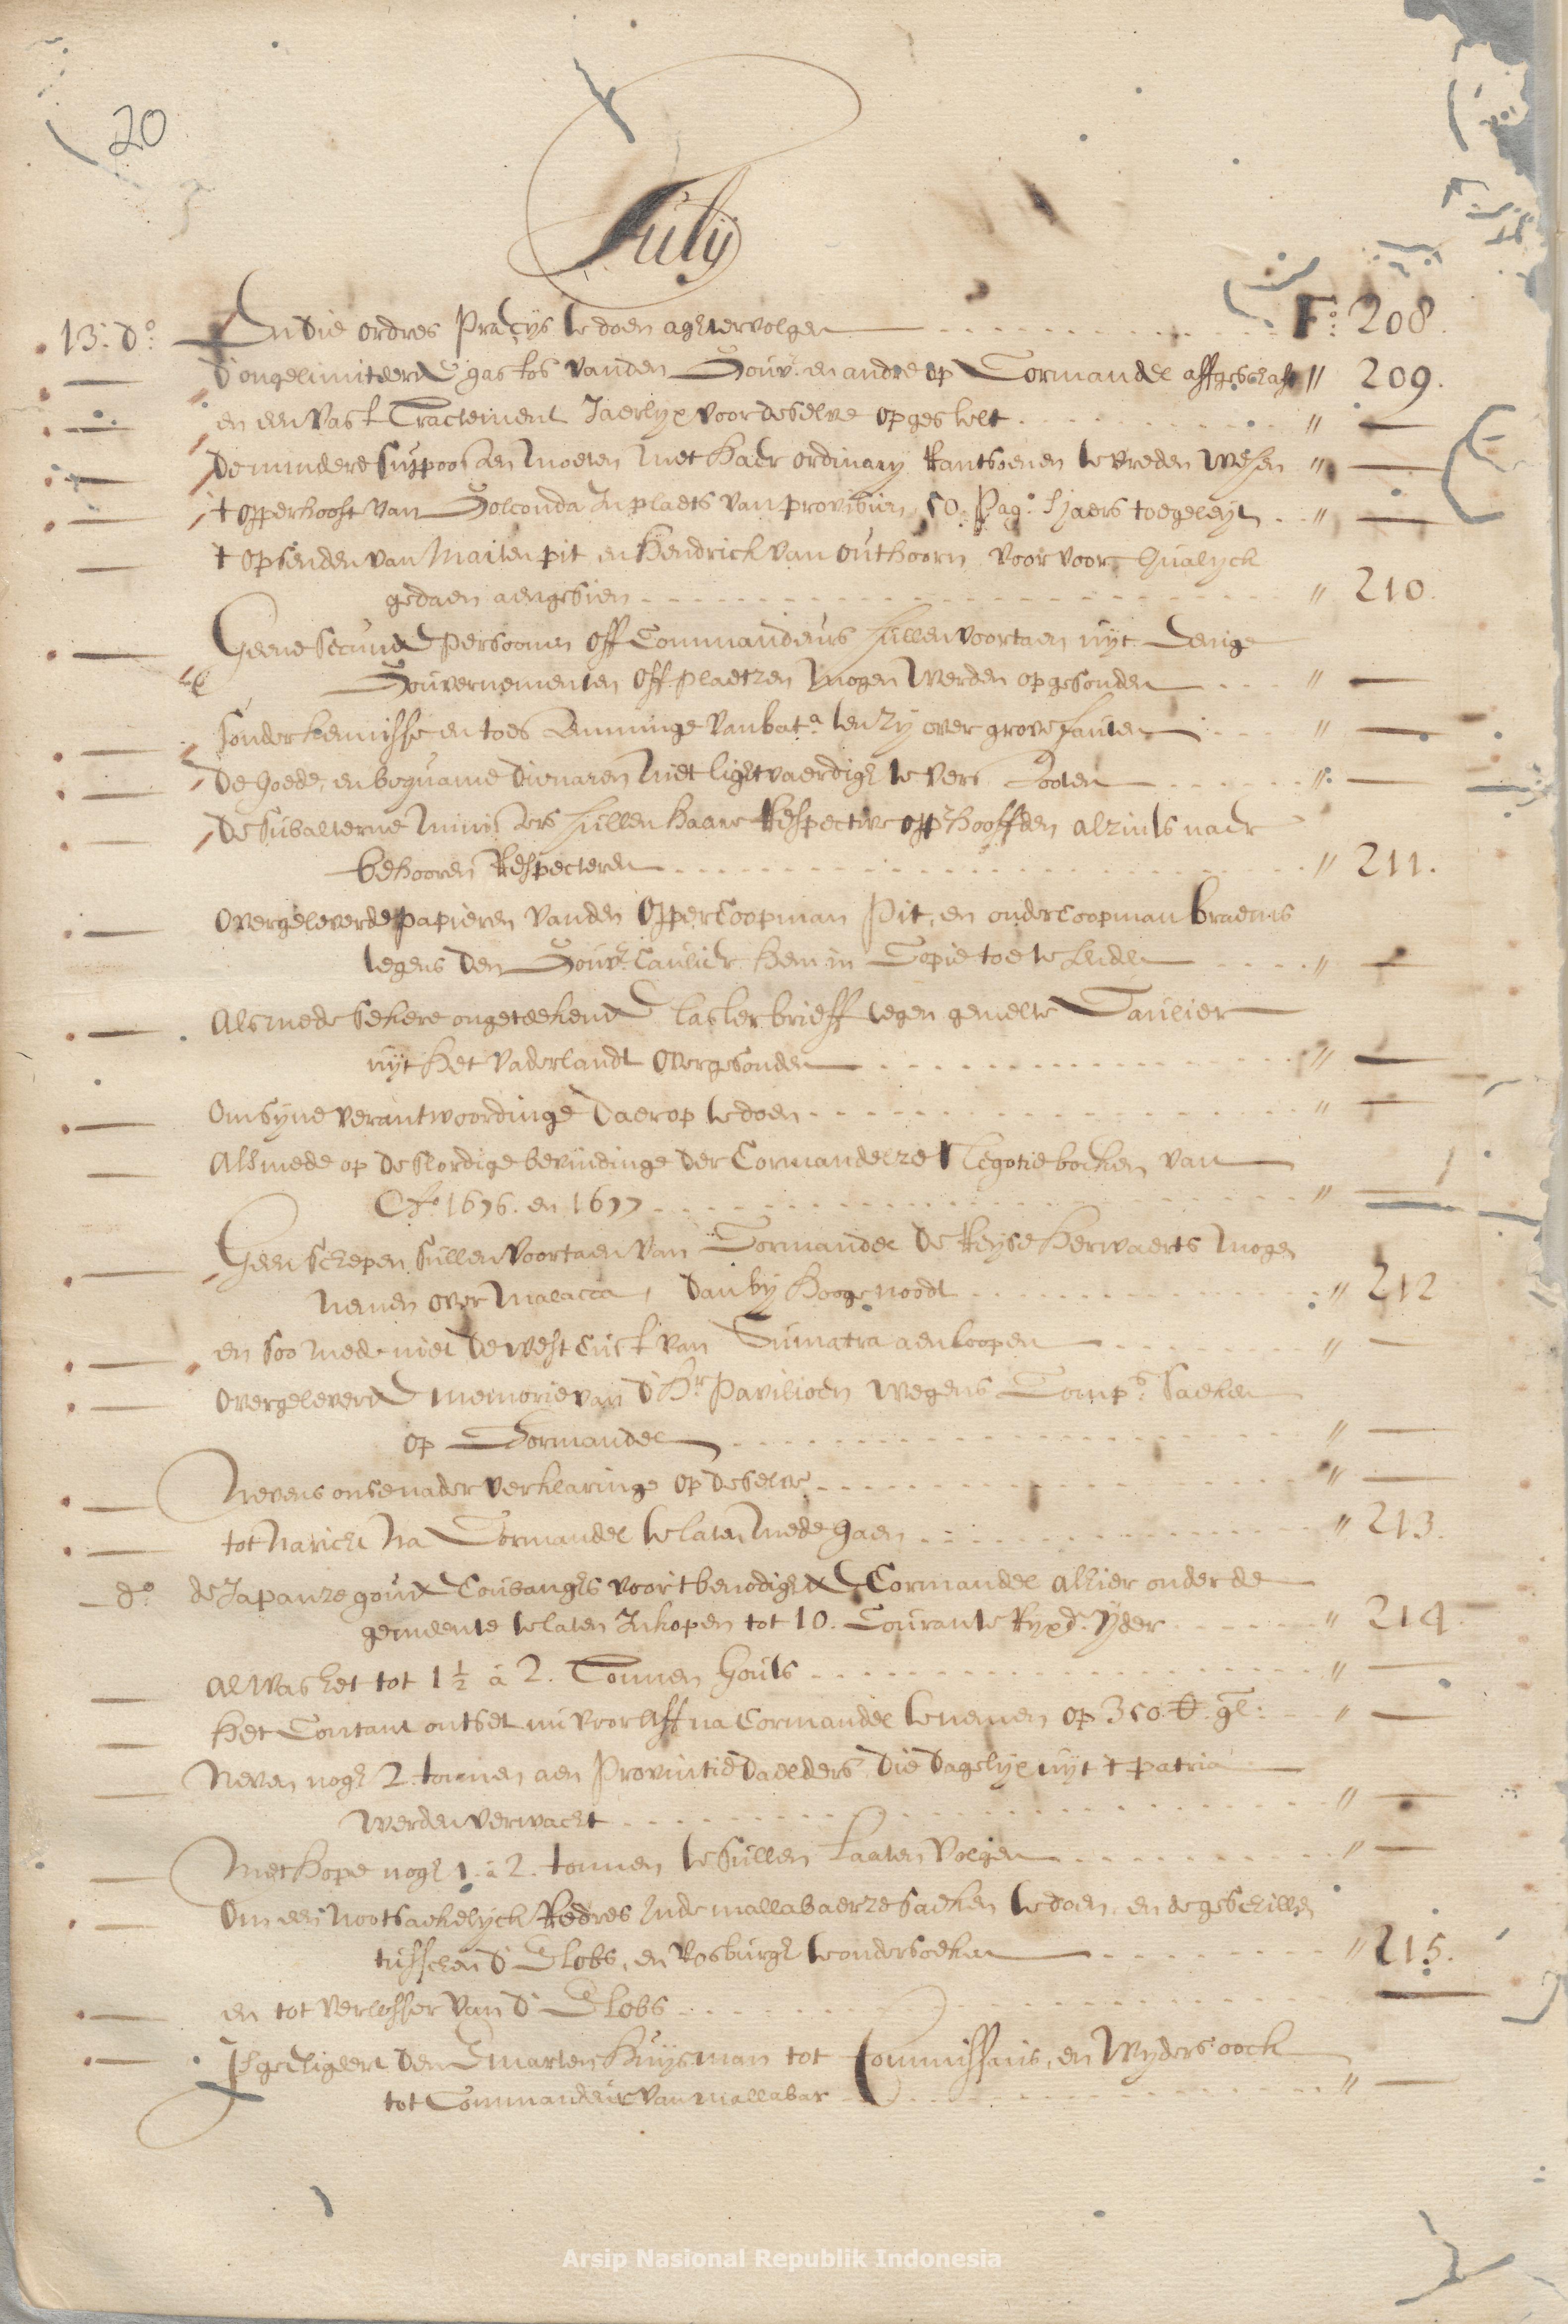 20
July
13. do. En die ordres Pracijs te doen aghtervolgen F.o 208.
— d'ongelimiteerd gastos van den Gouvr. en andre op Cormandel affgeschaft " 209.
— en een vast Tractement Jaerlyx voor deselve opgestelt " —
— de mindere suppoosten moeten met haer ordinary Rantsoenen te vreden wesen " —
— 't opperhooft van Golconda In plaets van provisien 50. Pag.s sjaers toegeleyt " —
— t opsenden van Maerten pit en Hendrick van Outhoorn voor voor qualyck
gedaen aengesien " 210.
— Geene secunde persoonen off Commandeurs sullen voortaen uyt eenige
Gouvernementen off plaetzen mogen werden opgesonden " —
— sonder kennisse en toestemminge van bat.a ten zy over grove fauten " —
— De goede, en bequame dienaren niet lightvaerdigh te verstooten " —
— de subalterne ministers sullen haare Respective opperhooffden alzints naer
behooren Respecteren " 211.
— Overgeleverde papieren van den Oppercoopman Pit, en ondercoopman braems
tegens den Gouvr. Caulier hem in Copie toe te senden " —
— Als mede sekere ongeteekend lasterbrieff tegen gemelte Caulier
uyt het vaderlandt overgesonden " —
— Om syne verantwoordinge daerop te doen " —
— Als mede op de slordige bevindinge der Cormandelze Negotie boeken van
Ao. 1676. en 1677 " —
— Geen schepen sullen voortaen van Cormandel de Reyse herwaerts mogen
nemen over Malacca, dan by hooge noodt " 212
— en soo mede niet de west Cust van Sumatra aenloopen " —
— Overgeleverd memorie van d'Hr. Pavilioen wegens Comp.s saeken
op Cormandel " —
— Nevens onse nader verklaringe op deselve " —
— tot naricht na Cormandel te laten mede gaen " 213.
— do. de Japanze goud Coubanghs voor 't benodighd Cormandel alhier onder de
gemeente te laten Inkopen tot 10. Courante Ryxd. yder " 214.
— al was het tot 1½ á 2. Tonnen gouts " —
— Het Contant ontset nu voor aff na Cormandel te nemen op 350. gl: " —
— Neven nogh 2. tonnen aen Provintie daelders die dagelyx uyt t patria
werden verwacht " —
— Met hope nogh 1. á 2. tonnen te sullen laaten volgen " —
— Om een nootsaekelyck Redres In de mallabaerze saeken te doen, en de geschillen
tusschen d'E Lobs, en Vosburgh te ondersoeken " 215.
— en tot verlosser van d'E Lobs —
— Is geeligeert den E marten Huysman tot Commissaris, en wyders oock
tot Commandeur van mallabar " —
Arsip Nasional Republik Indonesia